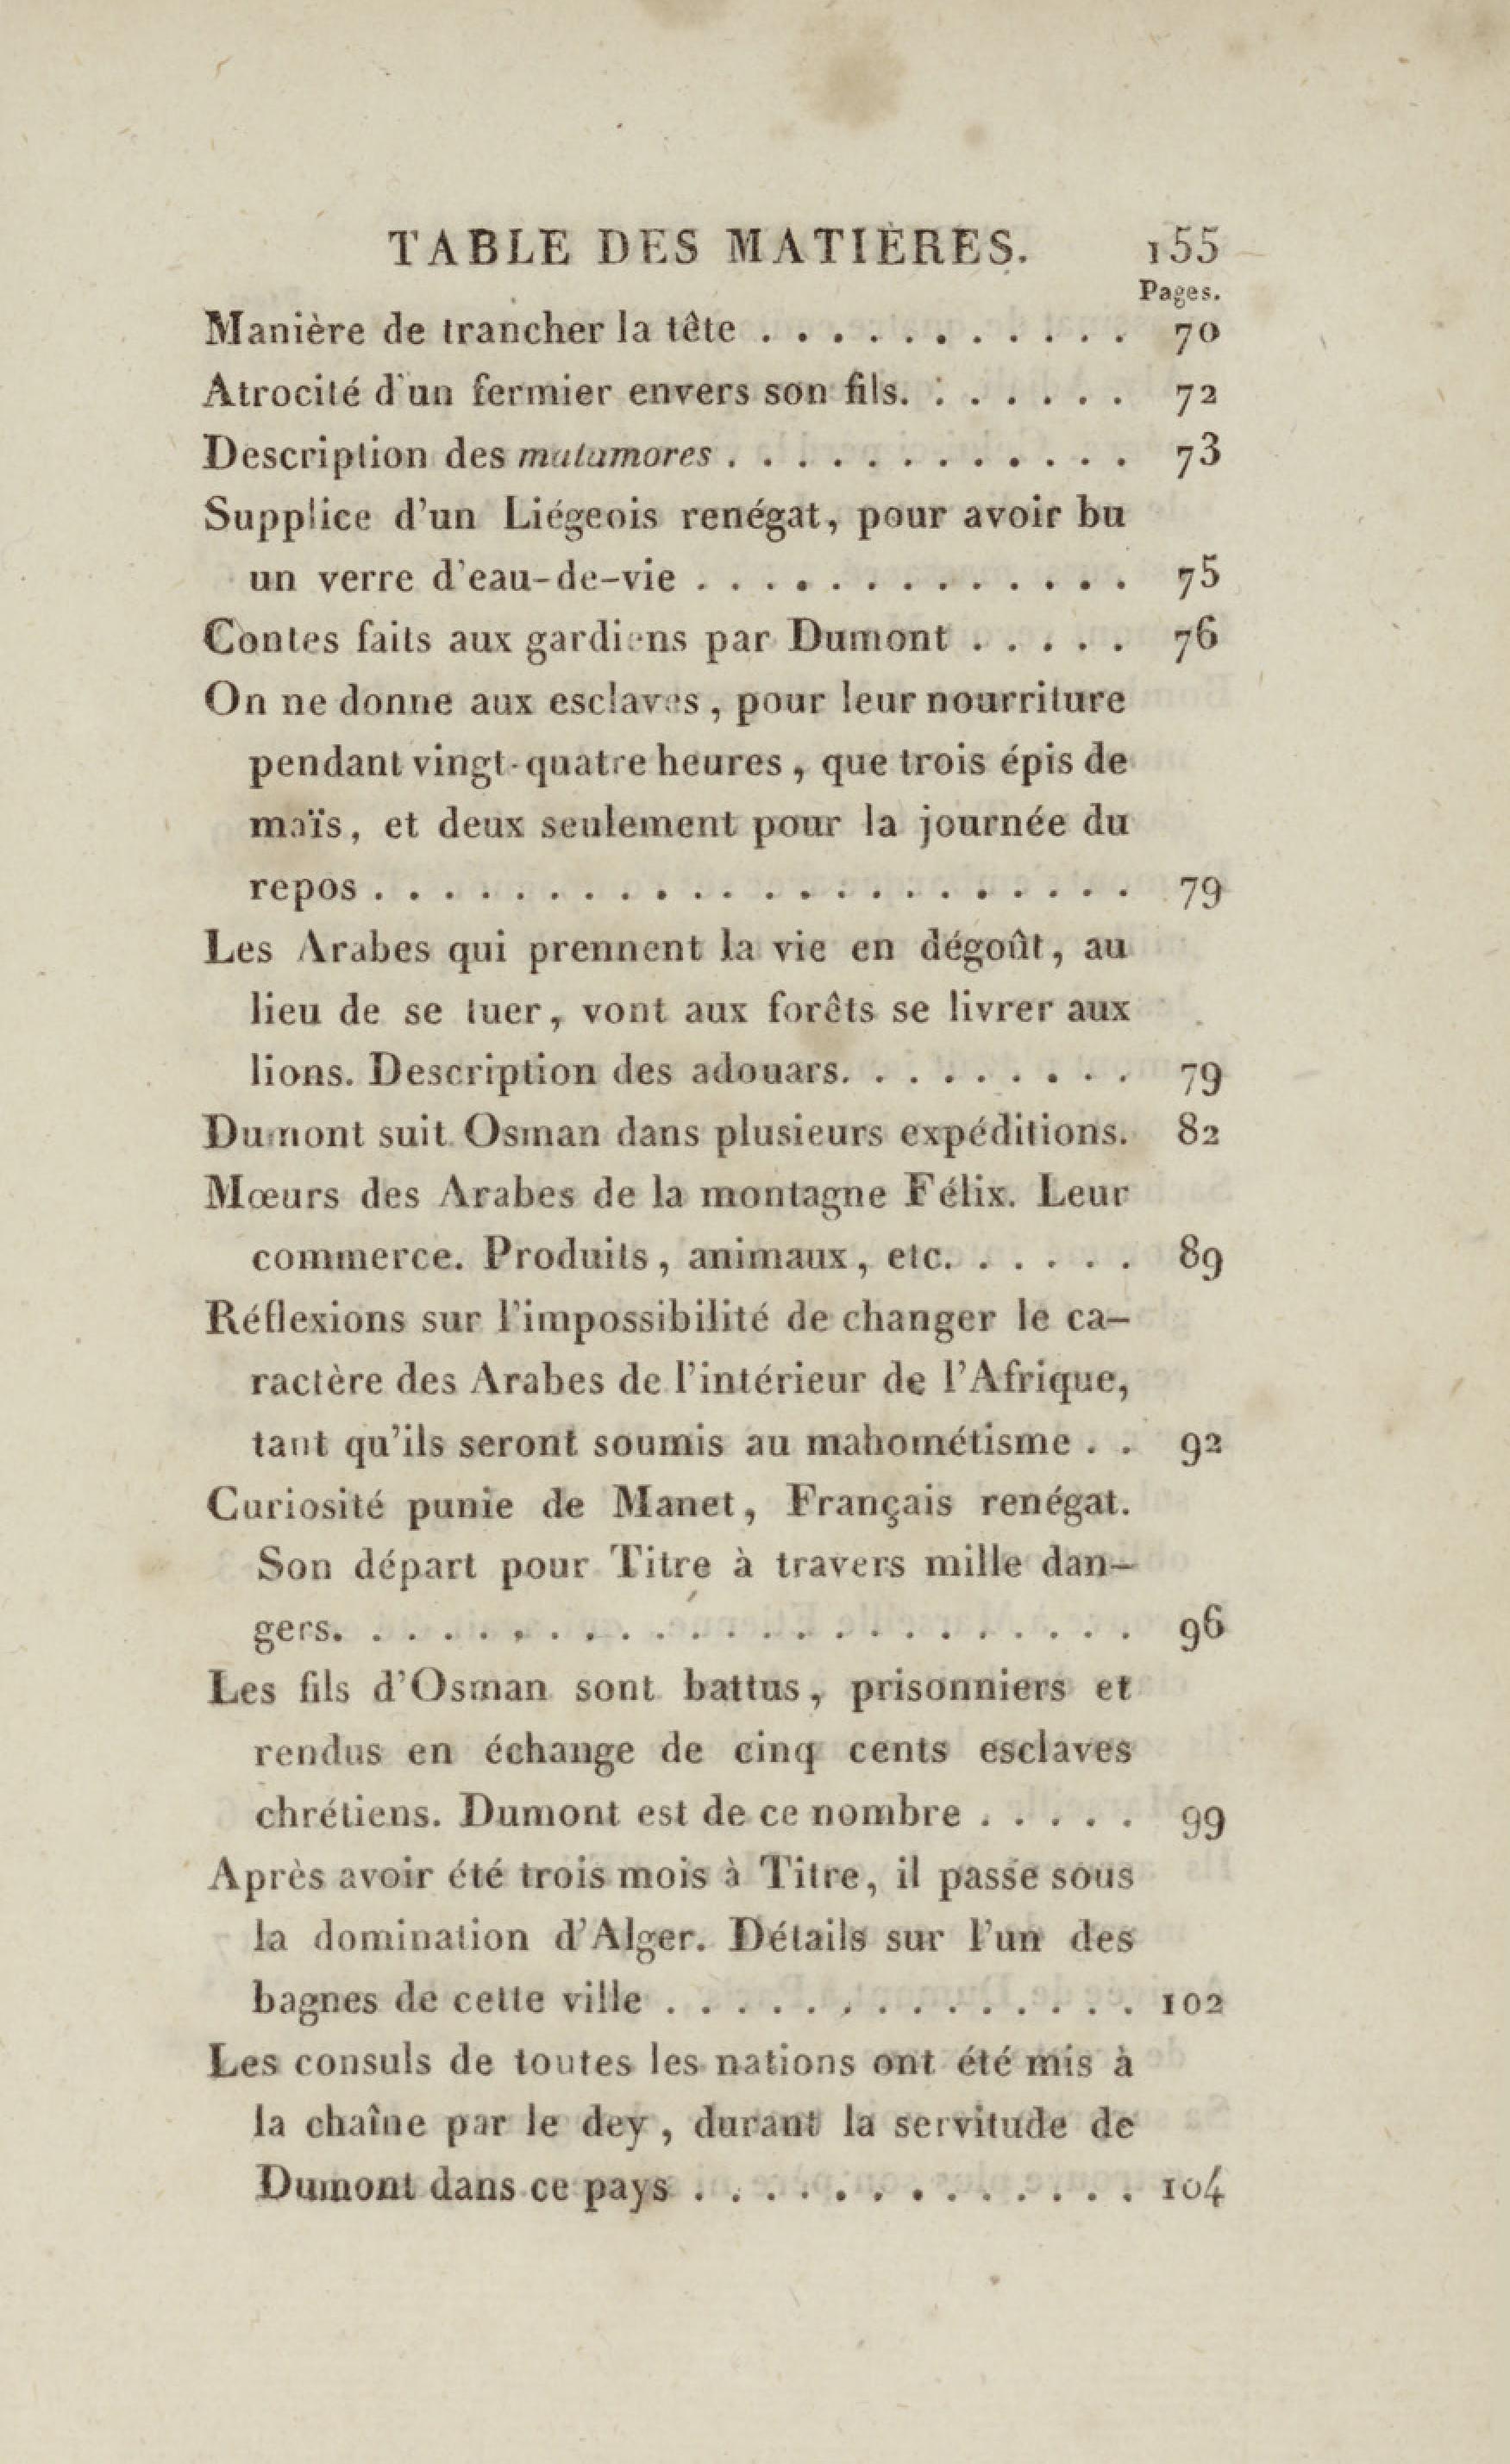 TABLE DES MATIÈRES. 155
Pages.
Manière de trancher la tête . . . . . . . . . . . 70
Atrocité d'un fermier envers son fils. : . . . . . 72
Description des matamores . . . . . . . . . . . . 73
Supplice d'un Liégeois renégat, pour avoir bu
un verre d'eau-de-vie . . . . . . . . . . . . . 75
Contes faits aux gardiens par Dumont . . . . . 76
On ne donne aux esclaves, pour leur nourriture
pendant vingt-quatre heures, que trois épis de
maïs, et deux seulement pour la journée du
repos . . . . . . . . . . . . . . . . . . . . . . 79
Les Arabes qui prennent la vie en dégoût, au
lieu de se tuer, vont aux forêts se livrer aux
lions. Description des adouars. . . . . . . . . 79
Dumont suit Osman dans plusieurs expéditions. 82
Mœurs des Arabes de la montagne Félix. Leur
commerce. Produits, animaux, etc. . . . . . 89
Réflexions sur l'impossibilité de changer le ca-
ractère des Arabes de l'intérieur de l'Afrique,
tant qu'ils seront soumis au mahométisme . . 92
Curiosité punie de Manet, Français renégat.
Son départ pour Titre à travers mille dan-
gers. . . . . . . . . . . . . . . . . . . . . . . 96
Les fils d'Osman sont battus, prisonniers et
rendus en échange de cinq cents esclaves
chrétiens. Dumont est de ce nombre . . . . . 99
Après avoir été trois mois à Titre, il passe sous
la domination d'Alger. Détails sur l'un des
bagnes de cette ville . . . . . . . . . . . . . . 102
Les consuls de toutes les nations ont été mis à
la chaîne par le dey, durant la servitude de
Dumont dans ce pays . . . . . . . . . . . . . 104